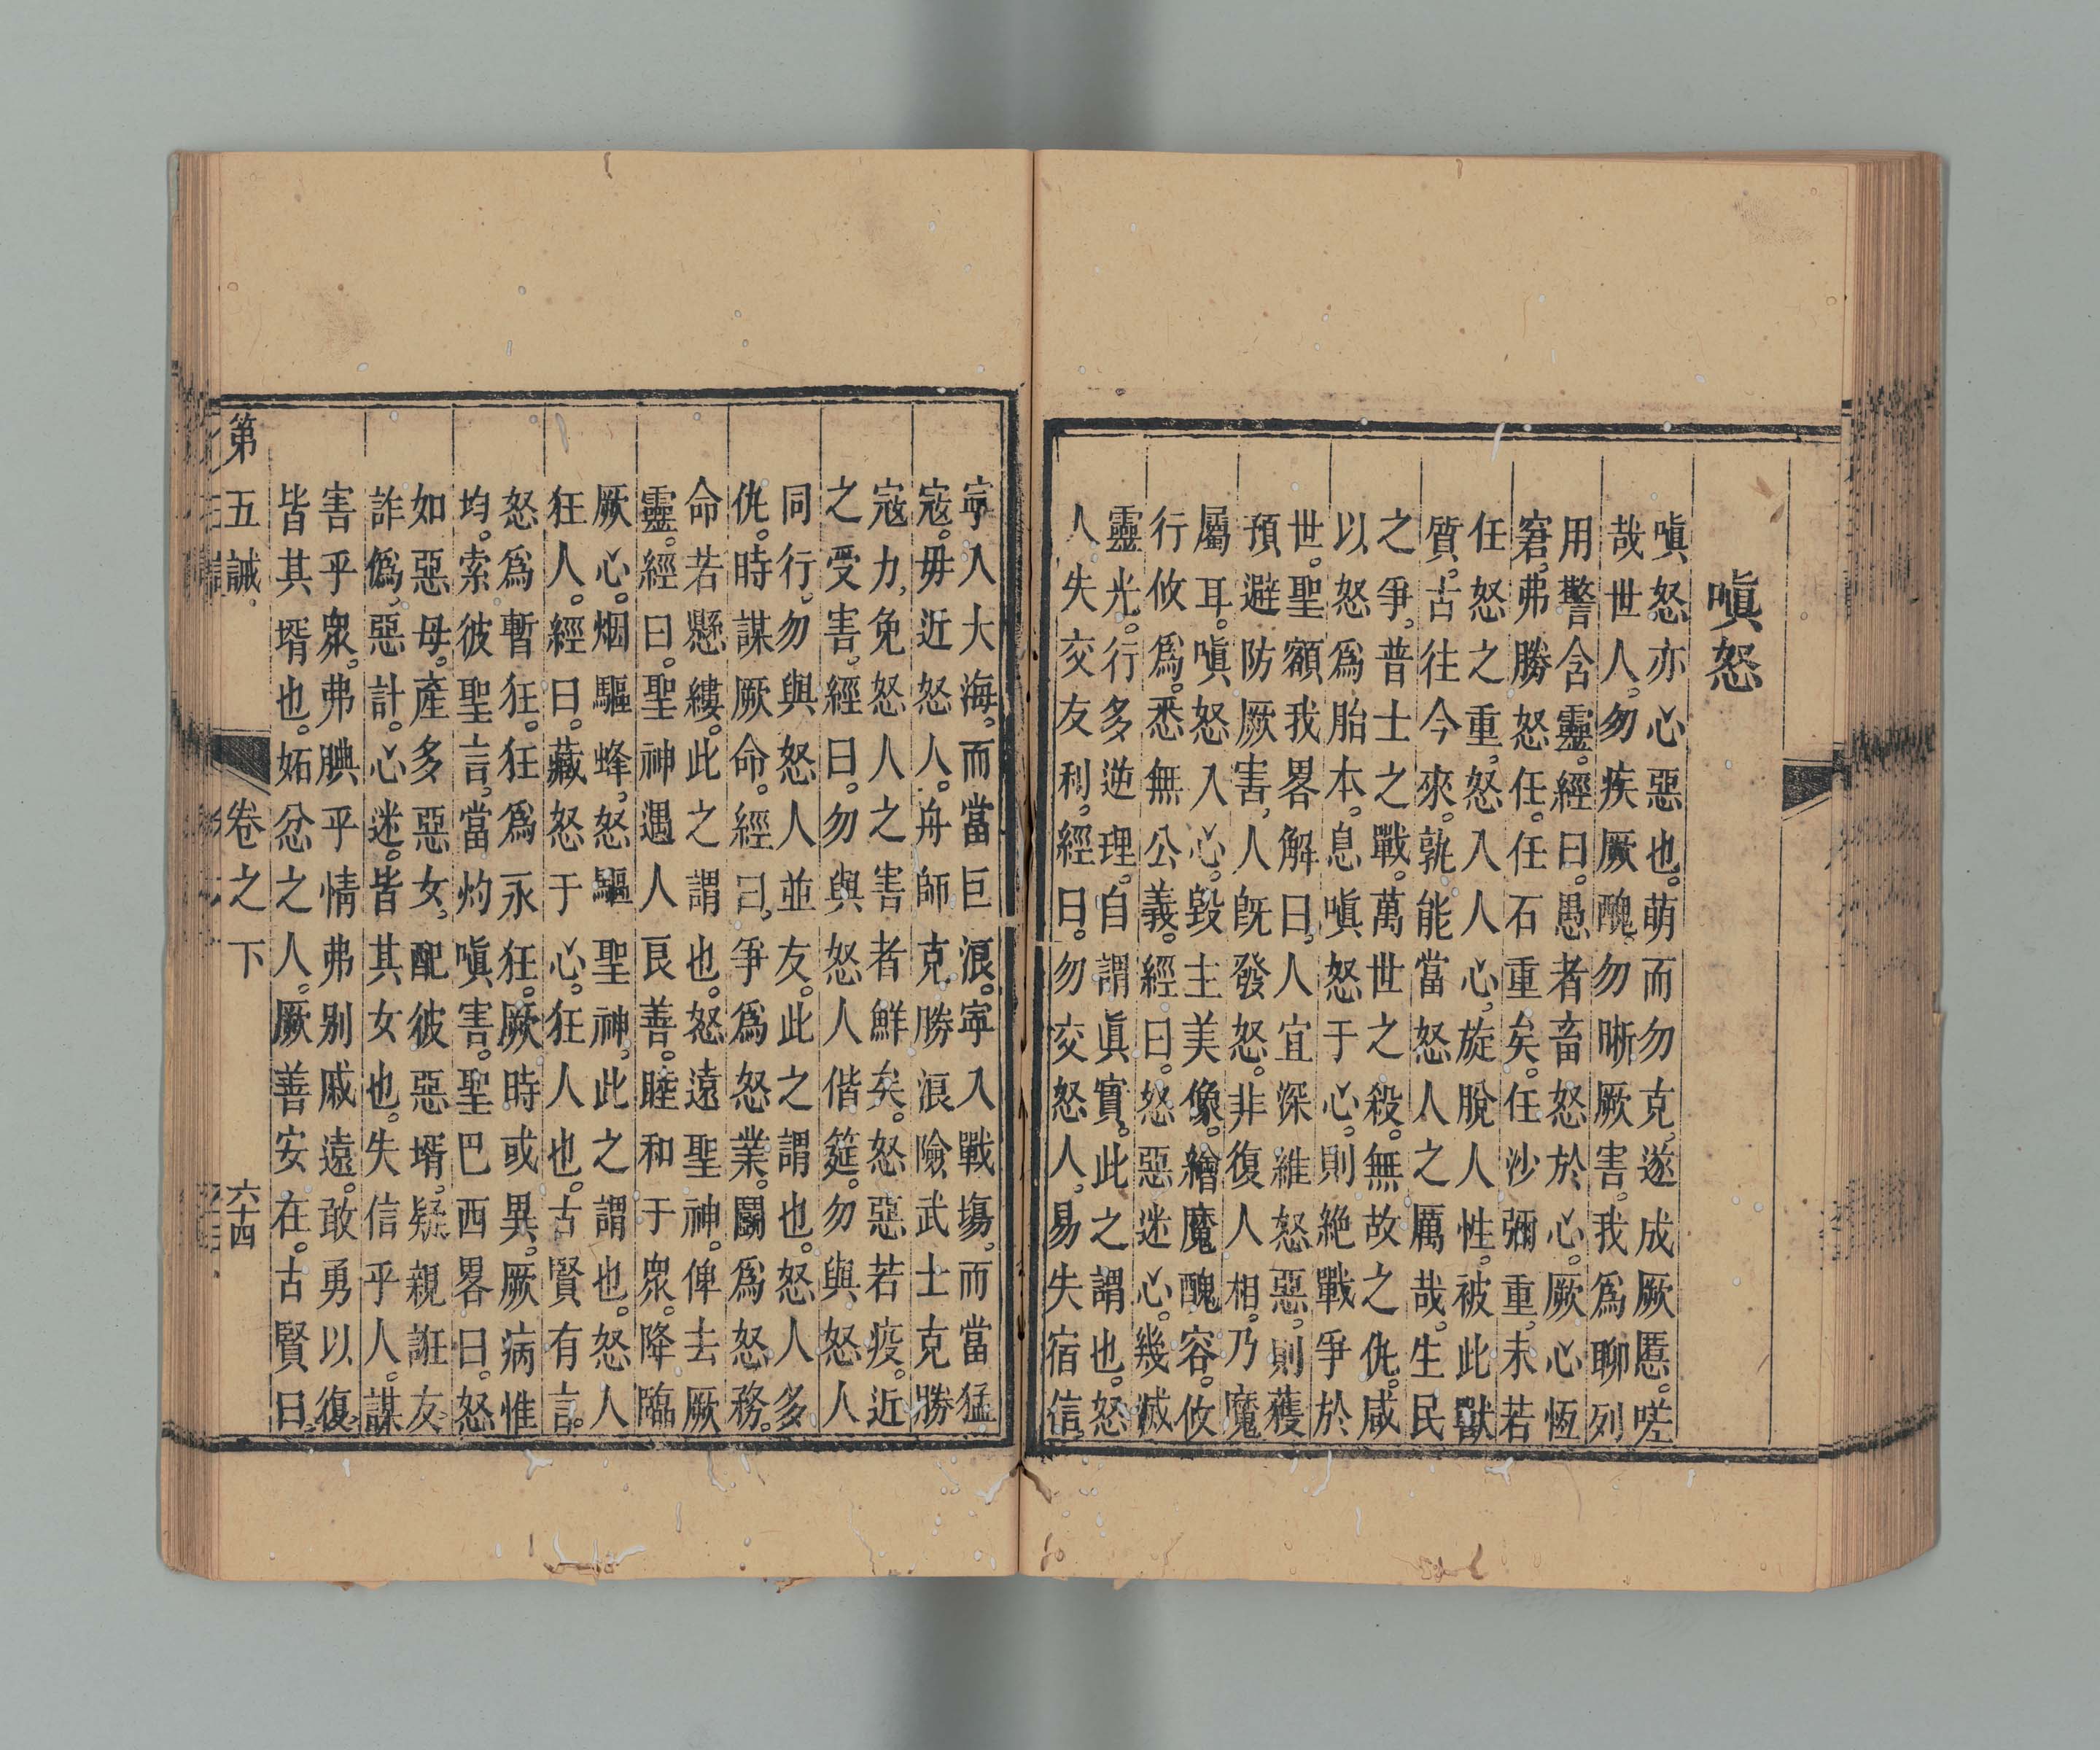 嗔怒
嗔怒亦心惡也。萌而勿克。遂成厥慝。嗟
哉世人。勿疾厥醜。勿晰厥害。我為聊列
用警含靈。經曰。愚者畜怒於心。厥心恆
窘。弗勝怒任。任石重矣。任沙彌重。未若
任怒之重。怒入人心。旋脫人性。被此獸
質。古往今來。孰能當怒人之厲哉。生民
之爭。普士之戰。萬世之殺。無故之仇。咸
以怒為胎本。息嗔怒于心。則絕戰爭於
世。聖額我畧解曰。人宜深維怒惡。則獲
預避防厥害。人旣發怒。非復人相。乃魔
屬耳。嗔怒入心。毀主美像。繪魔醜容。攸
行攸為。悉無公義。經曰。怒惡迷心。幾滅
靈光。行多逆理。自謂眞實。此之謂也。怒
人失交友利。經曰。勿交怒人。易失宿信。
寧入大海。而當巨浪。寧入戰場。而當猛
寇。毋近怒人。舟師克勝浪險武士克勝
寇力。免怒人之害者鮮矣。怒惡若疫。近
之受害。經曰。勿與怒人偕筵。勿與怒人
同行。勿與怒人並友。此之謂也。怒人多
仇。時謀厥命。經曰。爭為怒業。鬬為怒務。
命若懸縷。此之謂也。怒遠聖神。俾去厥
靈。經曰。聖神遇人良善。睦和于眾。降臨
厥心。烟驅蜂。怒驅聖神。此之謂也。怒人
狂人。經曰。藏怒于心。狂人也。古賢有言。
怒為暫狂。狂為永狂。厥時或異。厥病惟
均。索彼聖言。當灼嗔害。聖巴西畧曰。怒
如惡母。產多惡女。配彼惡壻。疑親誑友
詐僞。惡計。心迷。皆其女也。失信乎人。謀
害乎眾。弗腆乎情弗别戚遠。敢勇以復
皆其壻也。妬忿之人。厥善安在。古賢曰。
第五誡 卷之下 六十四